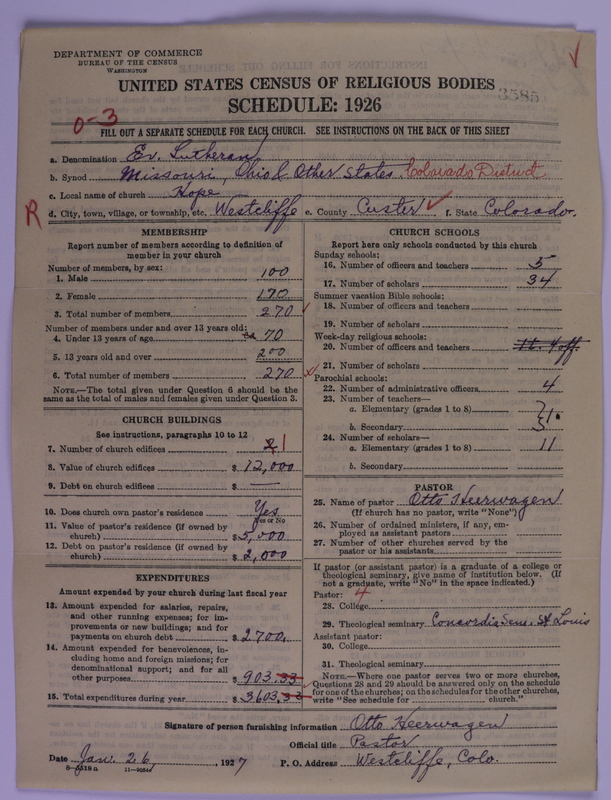 DEPARTMENT OF COMMERCE
BUREAU OF THE CENSUS
WASHINGTON
UNITED STATES CENSUS OF RELIGIOUS BODIES
SCHEDULE: 1926
3585
0-3
FILL OUT A SEPARATE SCHEDULE FOR EACH CHURCH. SEE INSTRUCTIONS ON THE BACK OF THIS SHEET
a. Denomination Ev. Lutheran
b. Synod Missouri, Ohio & Other States Colorado District
c. Local name of church Hope
R d. City, town, village, or township, etc. Westcliffe e. County Custer f. State Colorado.
MEMBERSHIP
Report number of members according to definition of
member in your church
Number of members, by sex:
1. Male 100
2. Female 170
3. Total number of members 270
Number of members under and over 13 years old:
4. Under 13 years of age ca 70
5. 13 years old and over 200
6. Total number of members 270
NOTE.—The total given under Question 6 should be the
same as the total of males and females given under Question 3.
CHURCH BUILDINGS
See instructions, paragraphs 10 to 12
7. Number of church edifices 2 1
8. Value of church edifices $ 12,000
9. Debt on church edifices $ —
10. Does church own pastor's residence Yes
Yes or No
11. Value of pastor's residence (if owned by
church) $ 5,000
12. Debt on pastor's residence (if owned by
church) $ 2,000
EXPENDITURES
Amount expended by your church during last fiscal year
13. Amount expended for salaries, repairs,
and other running expenses; for im-
provements or new buildings; and for
payments on church debt $ 2700.
14. Amount expended for benevolences, in-
cluding home and foreign missions; for
denominational support; and for all
other purposes $ 903.33
15. Total expenditures during year $ 3603.33
CHURCH SCHOOLS
Report here only schools conducted by this church
Sunday schools:
16. Number of officers and teachers 5
17. Number of scholars 34
Summer vacation Bible schools:
18. Number of officers and teachers
19. Number of scholars
Week-day religious schools:
20. Number of officers and teachers
21. Number of scholars
Parochial schools:
22. Number of administrative officers 4
23. Number of teachers—
a. Elementary (grades 1 to 8) 1
b. Secondary
24. Number of scholars—
a. Elementary (grades 1 to 8) 11
b. Secondary
PASTOR
25. Name of pastor Otto Heerwagen
(If church has no pastor, write "None")
26. Number of ordained ministers, if any, em-
ployed as assistant pastors
27. Number of other churches served by the
pastor or his assistants
If pastor (or assistant pastor) is a graduate of a college or
theological seminary, give name of institution below. (If
not a graduate, write "No" in the space indicated.)
Pastor: 4
28. College
29. Theological seminary Concordia Sem. St Louis
Assistant pastor:
30. College
31. Theological seminary
NOTE.—Where one pastor serves two or more churches,
Questions 28 and 29 should be answered only on the schedule
for one of the churches; on the schedules for the other churches,
write "See schedule for church."
Signature of person furnishing information Otto Heerwagen
Official title Pastor
Date Jan. 26, 1927 P. O. Address Westcliffe, Colo.